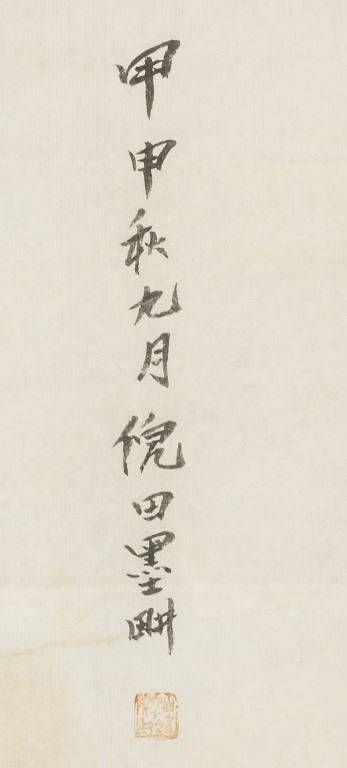 甲申秋九月倪田墨畊